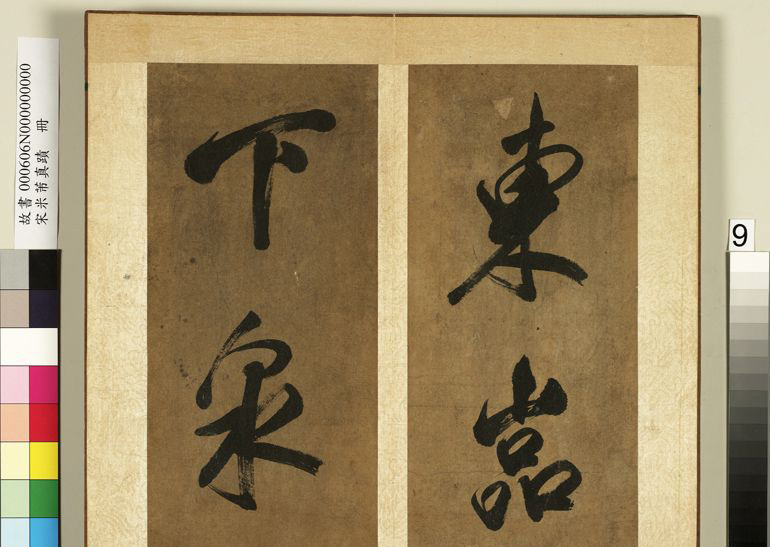 東嵓
下泉
故書 000606N000000000
宋米芾真蹟 冊
9